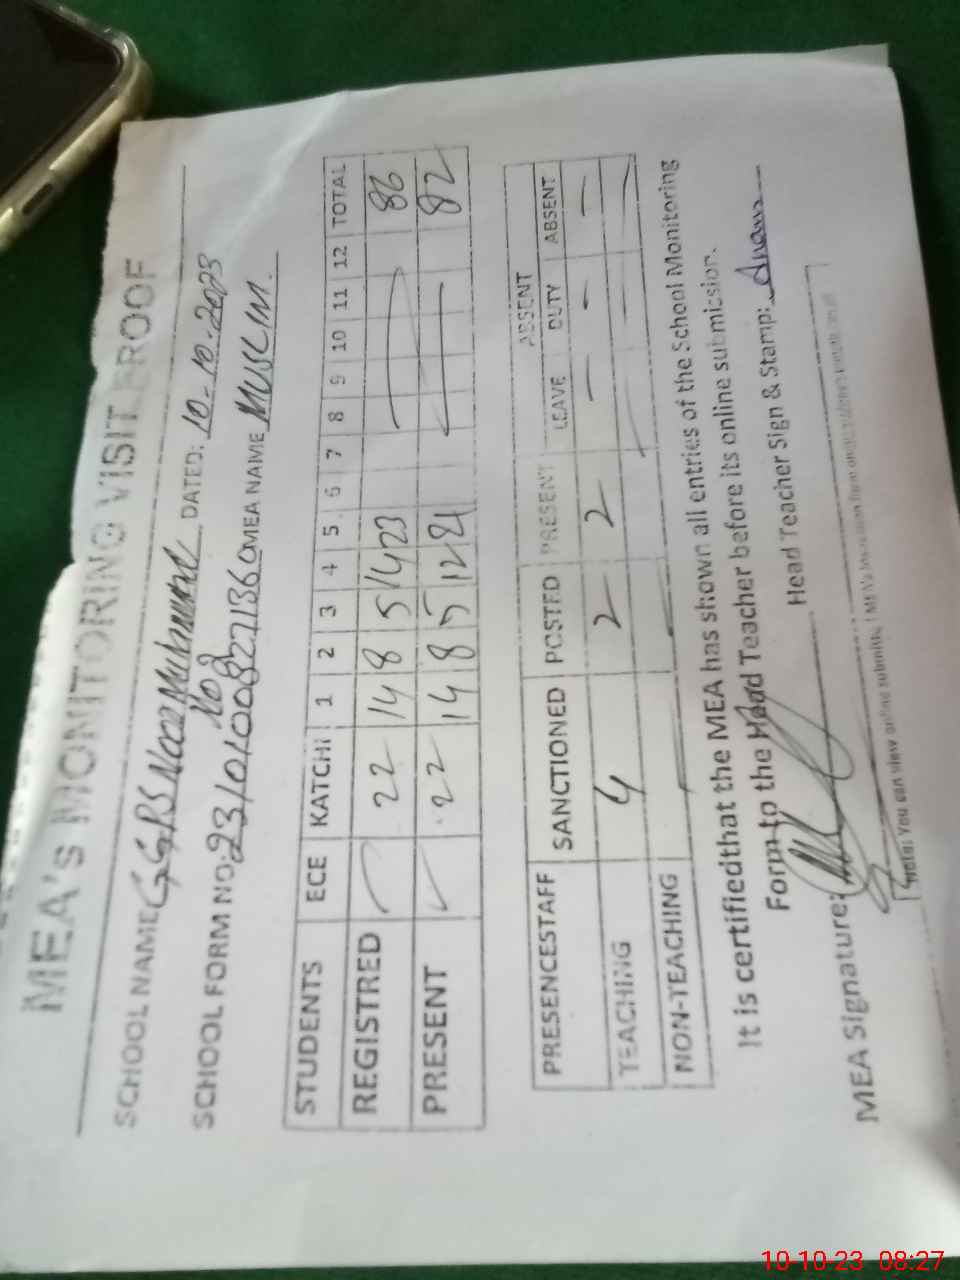 MEA's MONITORING VISIT PROOF
SCHOOL NAME GGPS Niaz Muhammad DATED: 10-10-2023
No 2
SCHOOL FORM NO: MEA NAME MUSLIM.
STUDENTS ECE KATCHI 1 2 3 4 5 6 7 8 9 10 11 12 TOTAL
REGISTRED 22 14 8 5 14 23 86
PRESENT 22 14 8 5 12 21 82
PRESENCESTAFF SANCTIONED POSTED PRESENT ABSENT
LEAVE DUTY ABSENT
TEACHING 4 2 2 - - -
NON-TEACHING
It is certifiedthat the MEA has shown all entries of the School Monitoring
Form to the Head Teacher before its online submission.
Head Teacher Sign & Stamp:
MEA Signature:
Note: You can view online submitted MEA's
10-10-23 08:27